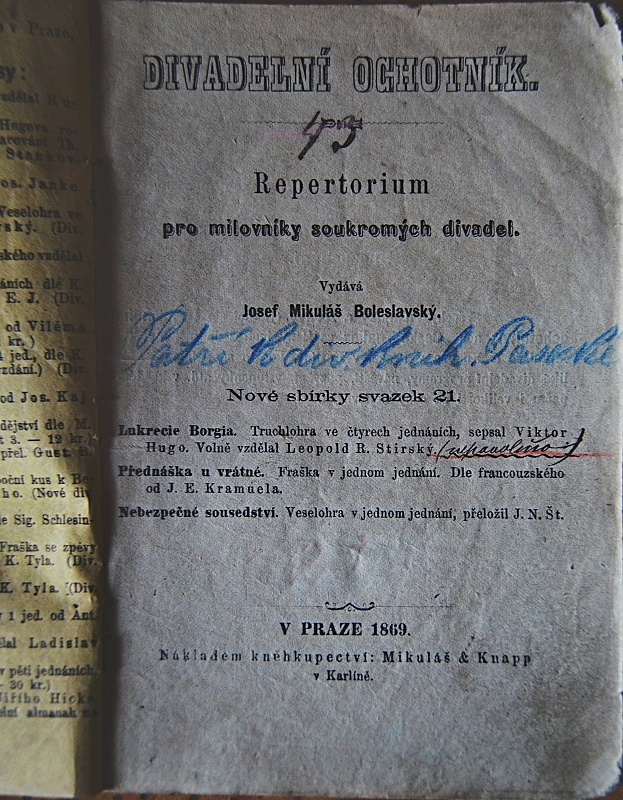 v Praze,
sy:
zdělal
Hugova
pracování Th.
Stankov.
Jos. Janke.
Veselohra ve
(Div.
ského vzdělal
ních dle K.
E. J. (Div.
od Viléma
kr.)
jed., dle K.
zdání.) (Div.
od Jos. Kaj.
dějství dle M.
t 3. — 12 kr.)
přel. Gust. B.
oční kus k Be-
ho. (Nové div
le Sig. Schlesin-
Fraška se zpěvy
K. Tyla. (Div.
K. Tyla. (Div
v 1 jed. od Ant.
ělal Ladislav
v pěti jednáních
- 30 kr.)
Jiřího Hick
elní almanak
DIVADELNÍ OCHOTNÍK.
43
Repertorium
pro milovníky soukromých divadel.
Vydává
Josef Mikuláš Boleslavský.
Patří k div. knih. Pasecké
Nové sbírky svazek 21.
Lukrecie Borgia. Truchlohra ve čtyrech jednáních, sepsal Viktor
Hugo. Volně vzdělal Leopold R. Stirský. (nepovoleno)
Přednáška u vrátné. Fraška v jednom jednání. Dle francouzského
od J. E. Kramuela.
Nebezpečné sousedství. Veselohra v jednom jednání, přeložil J. N. Št.
V PRAZE 1869.
Nákladem kněhkupectví: Mikuláš & Knapp
v Karlíně.